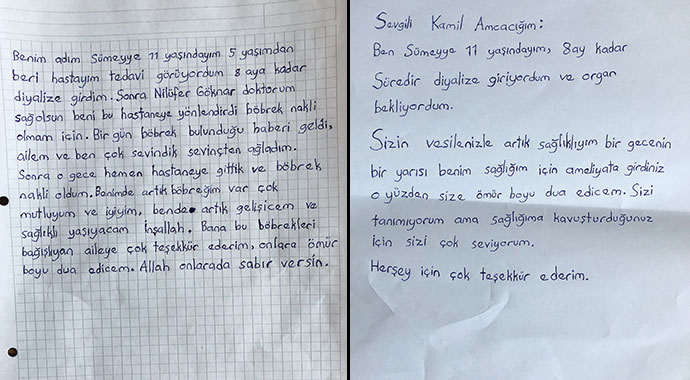 Benim adım Sümeyye 11 yaşındayım 5 yaşımdan
beri hastayım tedavi görüyordum 8 aya kadar
diyalize girdim. Sonra Nilüfer Göknar doktorum
sağolsun beni bu hastaneye yönlendirdi böbrek nakli
olmam için. Bir gün böbrek bulunduğu haberi geldi,
ailem ve ben çok sevindik sevinçten ağladım.
Sonra o gece hemen hastaneye gittik ve böbrek
nakli oldum. Benimde artık böbreğim var çok
mutluyum ve iyiyim, bende artık gelişicem ve
sağlıklı yaşıyacam İnşallah. Bana bu böbrekleri
bağışlıyan aileye çok teşekkür ederim, onlara ömür
boyu dua edicem. Allah onlarada sabır versin.
Sevgili Kamil Amcacığım:
Ben Sümeyye 11 yaşındayım, 8ay kadar
Süredir diyalize giriyordum ve organ
bekliyordum.
Sizin vesilenizle artık sağlıklıyım bir gecenin
bir yarısı benim sağlığım için ameliyata girdiniz
o yüzden size ömür boyu dua edicem. Sizi
tanımıyorum ama sağlığıma kavuşturduğunuz
için sizi çok seviyorum.
Herşey için çok teşekkür ederim.